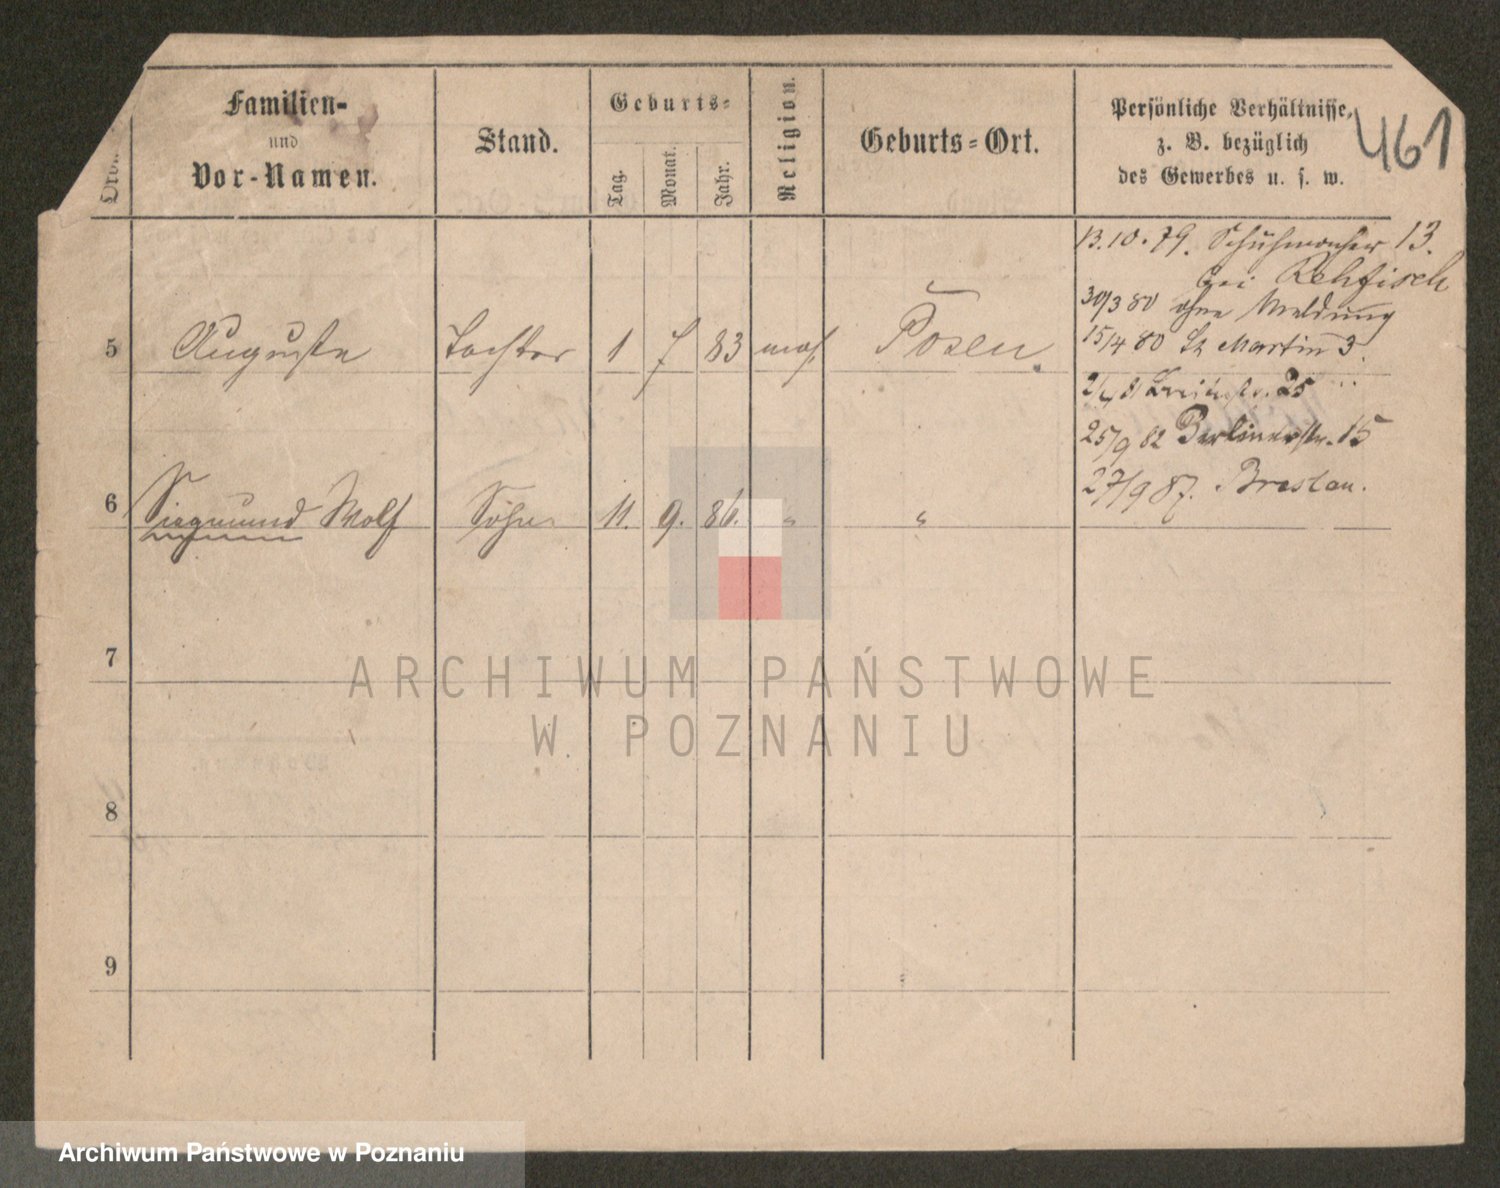 Familien-
und
Vor-Namen.
Stand.
Geburts-
Tag.
Monat.
Jahr.
Religion.
Geburts-Ort.
Persönliche Verhältnisse,
z. B. bezüglich
des Gewerbes u. s. w.
461
13.10.79. Schuhmacher 13.
bei Rehfisch
30/3 80 ohne Meldung
5 Auguste Tochter 1 7 83 mos. Posen.
15/4 80 St Martin 3.
25
25/9 82 Berlinerstr. 15
27/9 87. Breslau.
6 Siegmund Wolf Sohn 11. 9. 86. " "
7
8
9
ARCHIWUM PAŃSTWOWE
W POZNANIU
Archiwum Państwowe w Poznaniu